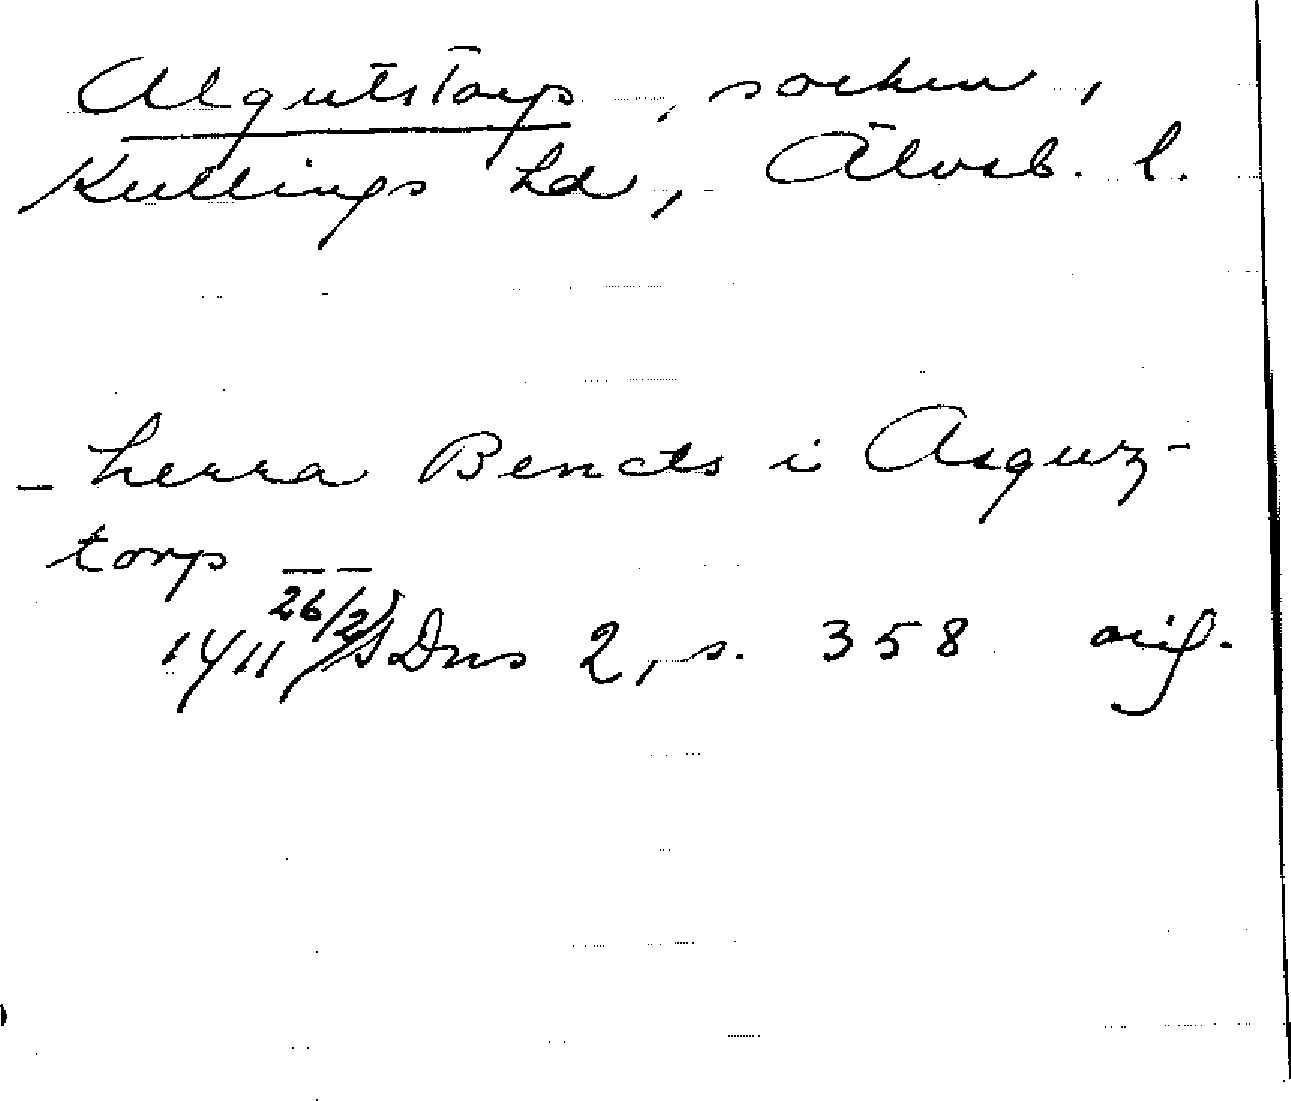 Algutstorp, socken,
Kullings hd, Älvsb. l.
– herra Bencts i Asguz-
torp – –
1411 26/2 SDns 2, s. 358 orig.